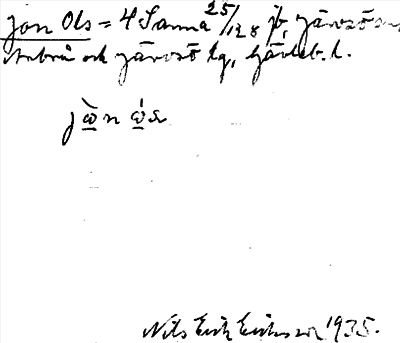 Jon Ols = 4 Sanna 25/12 8 p, Järvsö
Arbrå och Järvsö tg, Gävleb. l.
j ὼ n ώ s
Nils Erik Eriksson 1935.